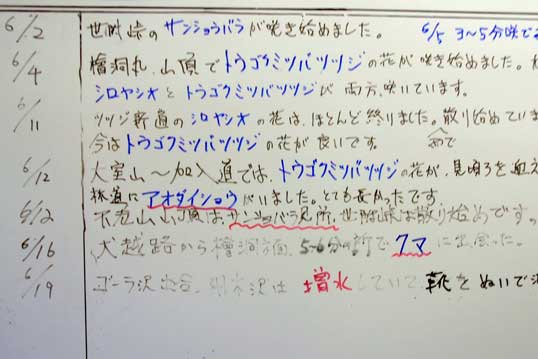 6/2 世附峠のサンショウバラが咲き始めました。 6/5 3〜5分咲で
6/4 檜洞丸、山頂でトウゴクミツバツツジの花が咲き始めました。
シロヤシオとトウゴクミツバツツジが両方、咲いています。
6/11 ツツジ新道のシロヤシオの花は、ほとんど終りました。散り始めていま
今はトウゴクミツバツツジの花が良いです。
6/12 大室山〜加入道では、トウゴクミツバツツジの花が、見頃を迎え
林道にアオダイショウがいました。とても長かったです
6/12 不老山山頂はサンショウバラ見所、世附峠は散り始めです。
6/16 犬越路から檜洞方面、5-6分の所でクマに出会った。
6/19 ゴーラ沢出合、 沢は増水していて靴をぬいで